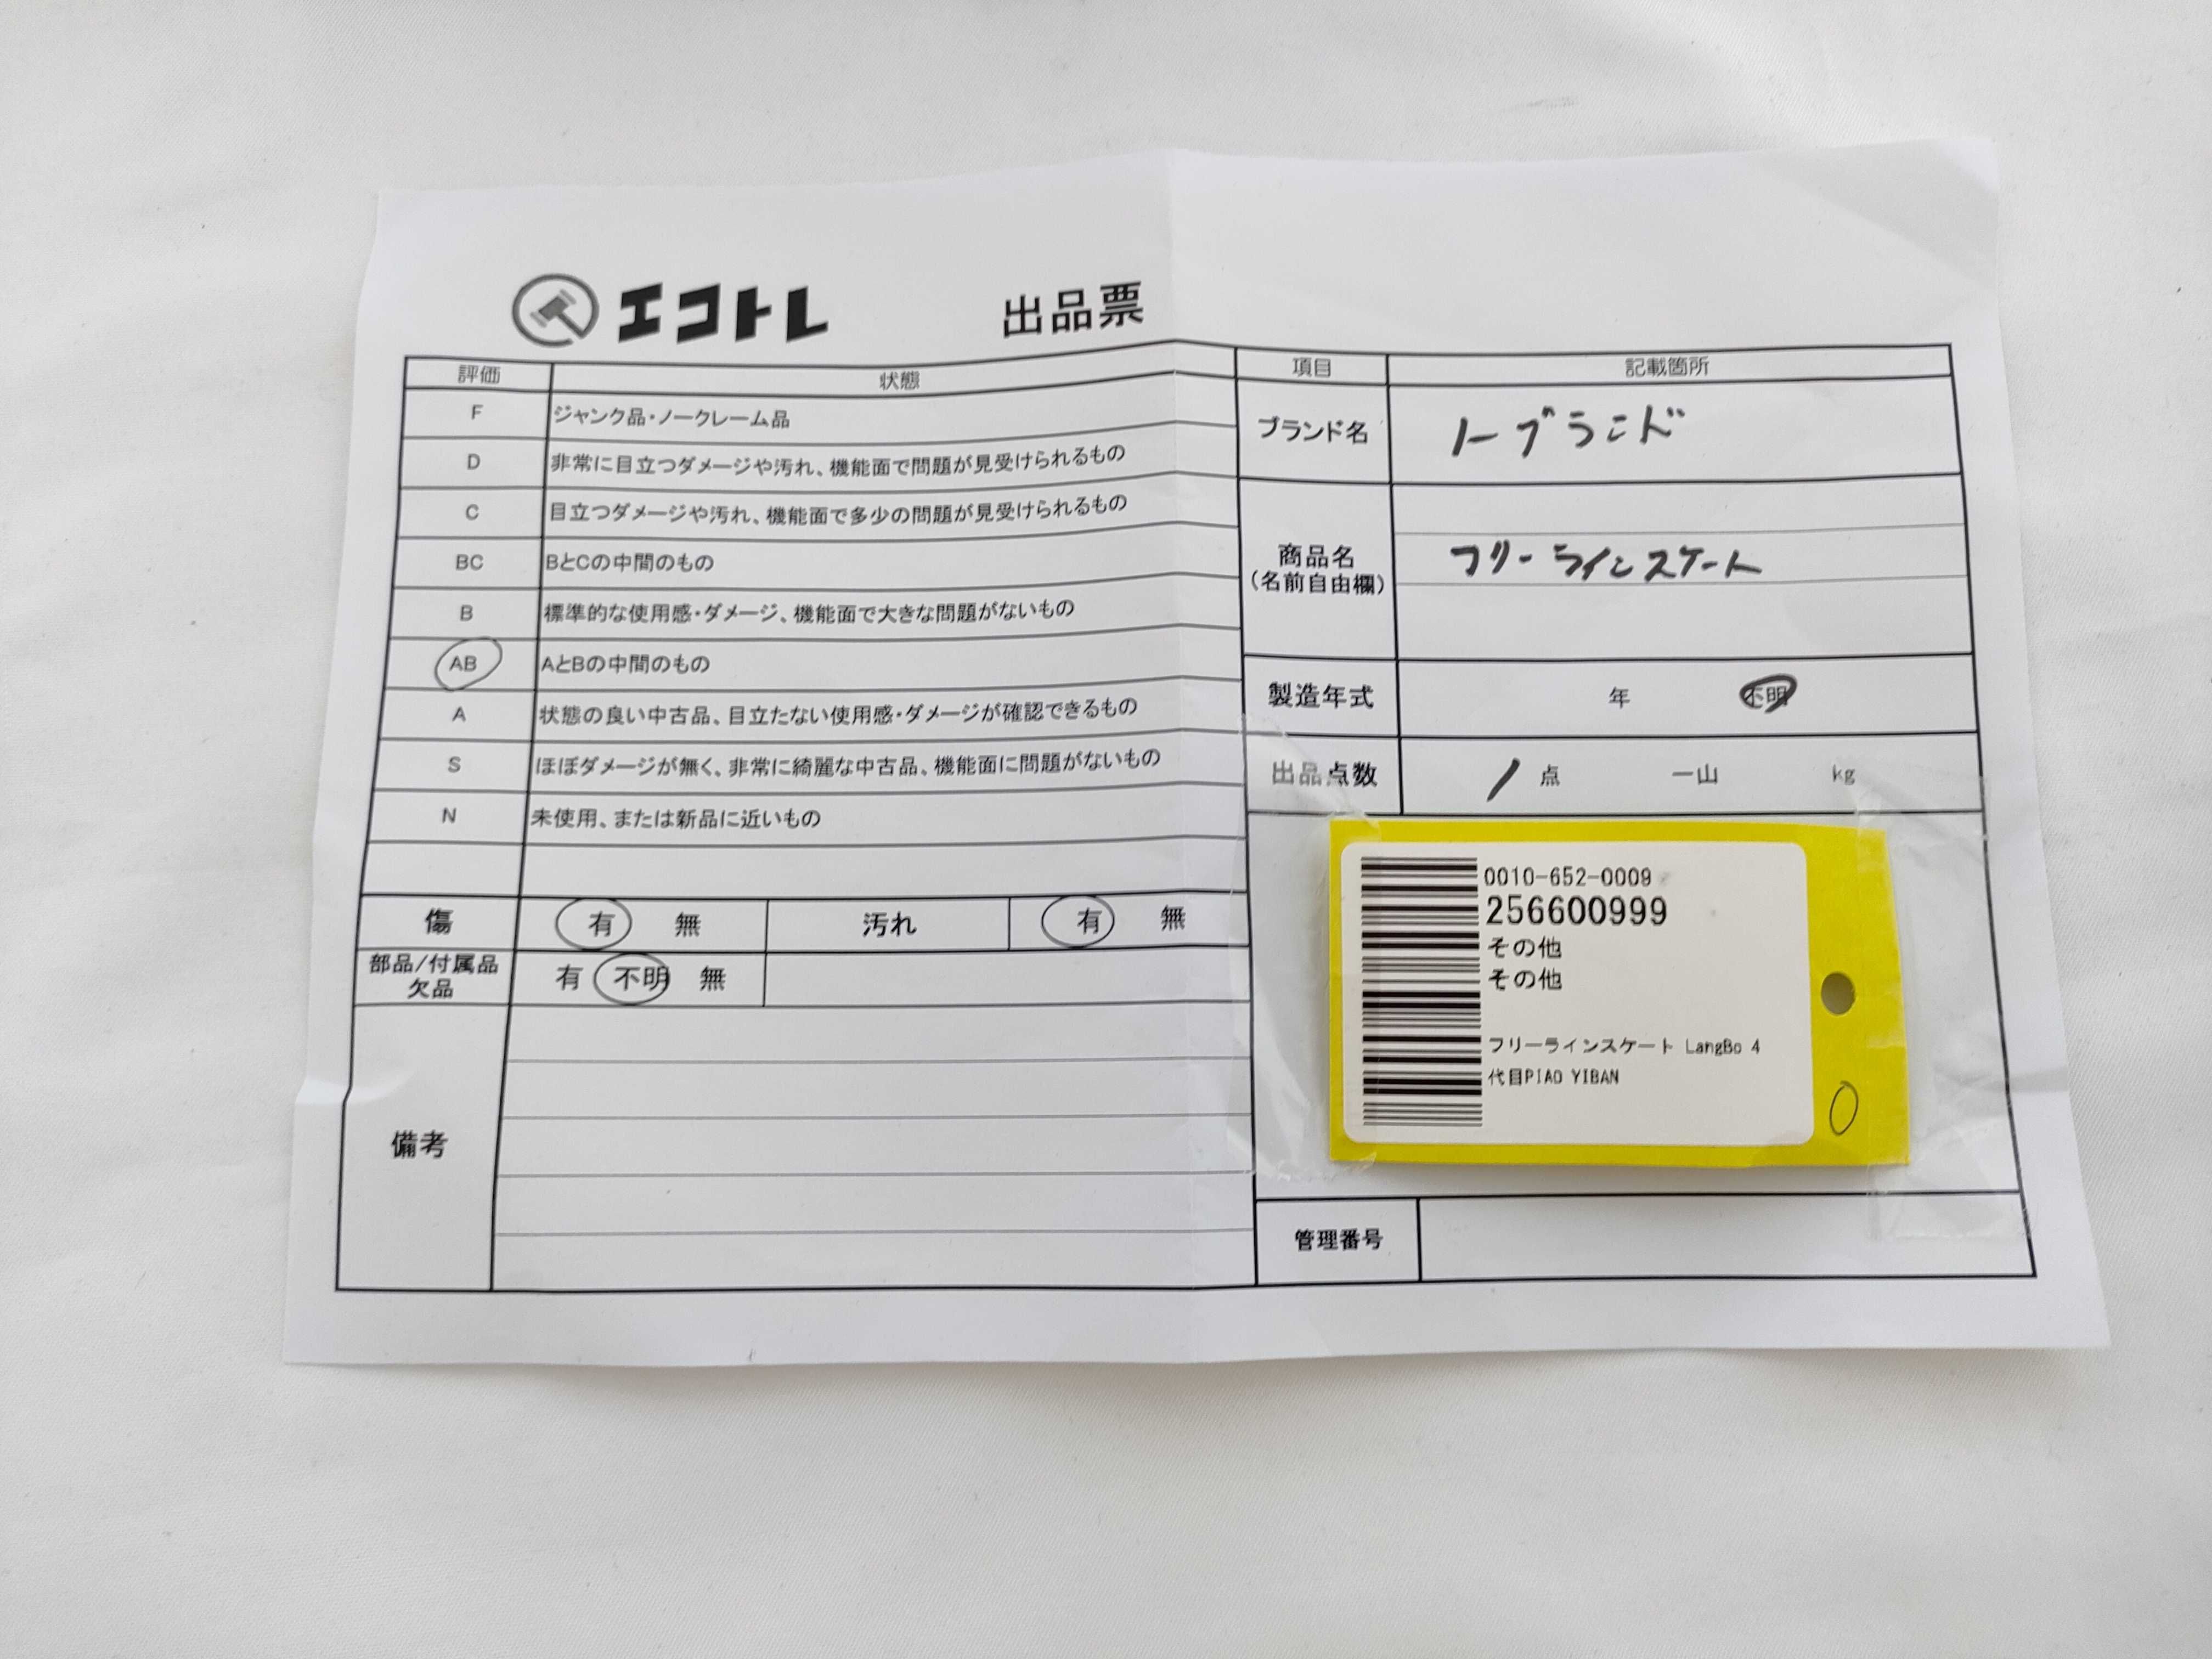 エコトレ 出品票
評価 状態
F ジャンク品・ノークレーム品
D 非常に目立つダメージや汚れ、機能面で問題が見受けられるもの
C 目立つダメージや汚れ、機能面で多少の問題が見受けられるもの
BC BとCの中間のもの
B 標準的な使用感・ダメージ、機能面で大きな問題がないもの
AB AとBの中間のもの
A 状態の良い中古品、目立たない使用感・ダメージが確認できるもの
S ほぼダメージが無く、非常に綺麗な中古品、機能面に問題がないもの
N 未使用、または新品に近いもの
傷 有 無 汚れ 有 無
部品/付属品
欠品 有 不明 無
備考
項目 記載箇所
ブランド名 ノーブランド
商品名
(名前自由欄) フリーラインスケート
製造年式 年 不明
出品点数 1 点 一山 kg
0010-652-0009
256600999
その他
その他
フリーラインスケート LangBo 4
代目PIAO YIBAN
管理番号